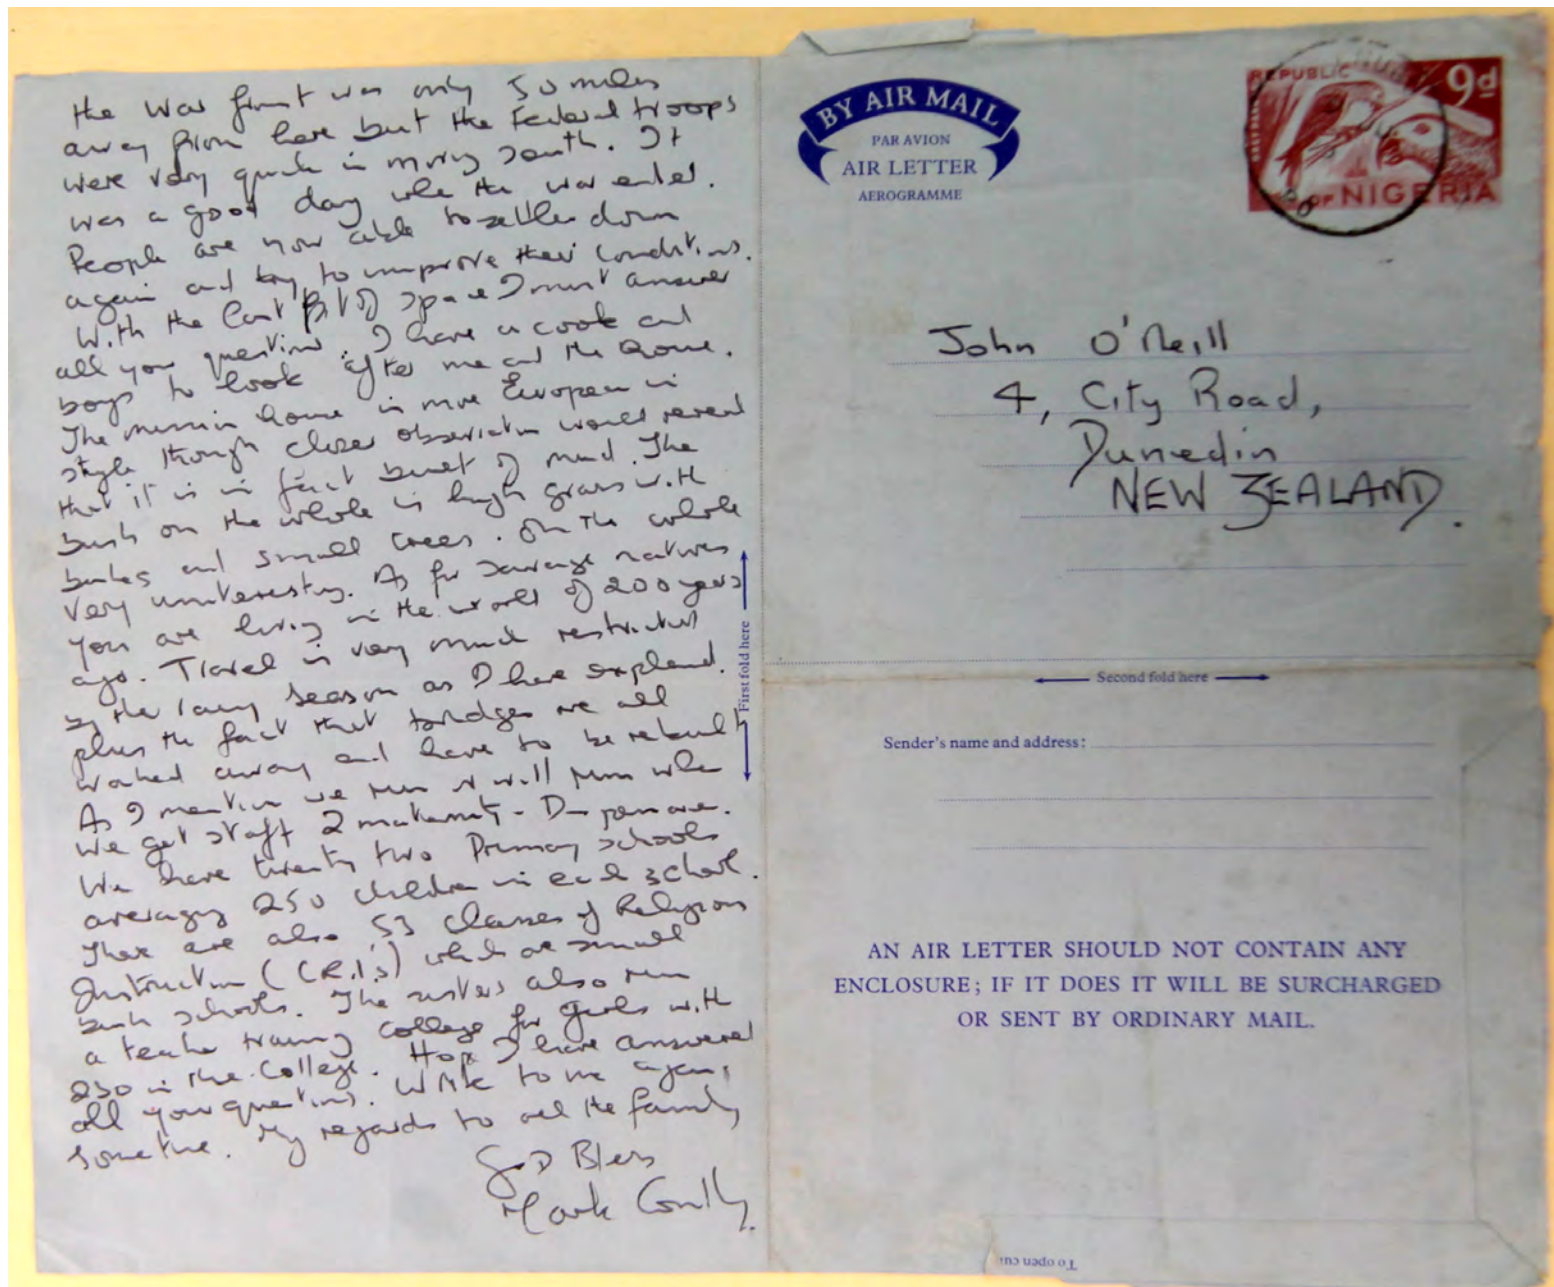 the War front was only 50 miles
away from here but the Federal troops
were very quick in moving South. It
was a good day when the war ended.
People are now able to settle down
again and try to improve their conditions.
With the last bit of space I must answer
all your questions. I have a cook and
boys to look after me and the House.
The mission House is more European in
style though closer observation would reveal
that it is in fact built of mud. The
bush on the whole is high grass with
bushes and small trees. On the whole
very uninteresting. As for savage natives
you are living in the world of 200 years
ago. Travel is very much restricted
by the rainy season as I have explained
plus the fact that bridges are all
washed away and have to be rebuilt
As I mention we run or will run when
we get staff 2 maternity -
We have twenty two Primary schools
averaging 250 children in each school.
There are also 53 classes of Religious
Instruction (C.R.I.s) which are small
bush schools. The sisters also run
a teacher training College for Girls with
250 in the College. Hope I have answered
all your questions. Write to me again
sometime. My regards to all the family
God Bless
Mark
BY AIR MAIL
PAR AVION
AIR LETTER
AEROGRAMME
REPUBLIC 9d
OF NIGERIA
John O'Neill
4, City Road,
Dunedin
NEW ZEALAND.
First fold here
Second fold here
Sender's name and address:
AN AIR LETTER SHOULD NOT CONTAIN ANY
ENCLOSURE; IF IT DOES IT WILL BE SURCHARGED
OR SENT BY ORDINARY MAIL.
To open cut